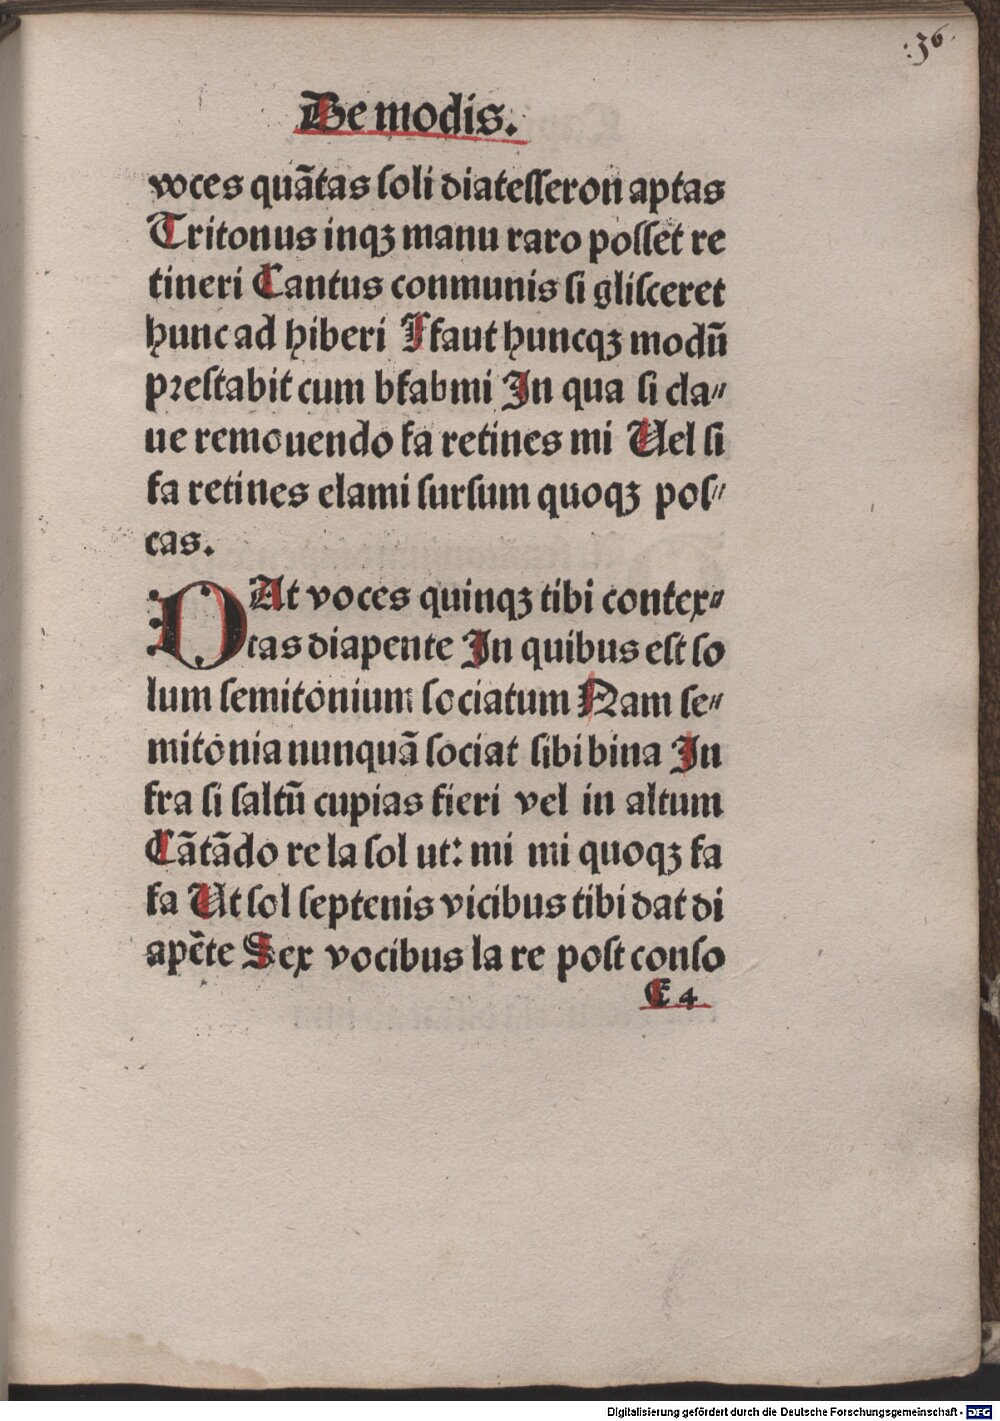 :36.
De modis.
voces quãtas soli diatesseron aptas
Tritonus inqꝫ manu raro posset re
tineri Cantus conmunis si glisceret
hunc ad hiberi Ffaut huncqꝫ modũ
prestabit cum bfabmi In qua si cla⸗
ue remouendo fa retines mi Uel si
fa retines elami sursum quoqꝫ pos⸗
cas.
DAt voces quinqꝫ tibi contex⸗
tas diapente In quibus est so
lum semitonium sociatum Nam se⸗
mitonia nunquã sociat sibi bina In
fra si saltũ cupias fieri vel in altum
Cãtãdo re la sol ut: mi mi quoqꝫ fa
fa Ut sol septenis vicibus tibi dat di
apẽte Sex vocibus la re post conso
E 4
Digitalisierung gefördert durch die Deutsche Forschungsgemeinschaft - DFG